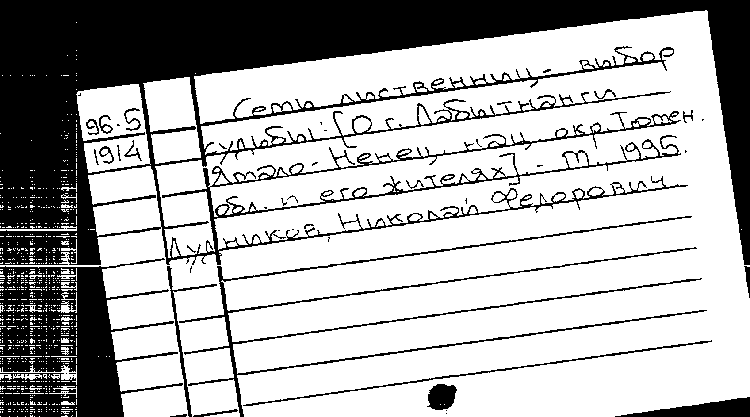 96.5 Семь лиственниц - выбор
1914 судьбы: [О г. Лабытнанги
Ямало-Ненец. нац. окр. Тюмен.
обл. и его жителях]. - М., 1995.
Дудников, Николай Федорович